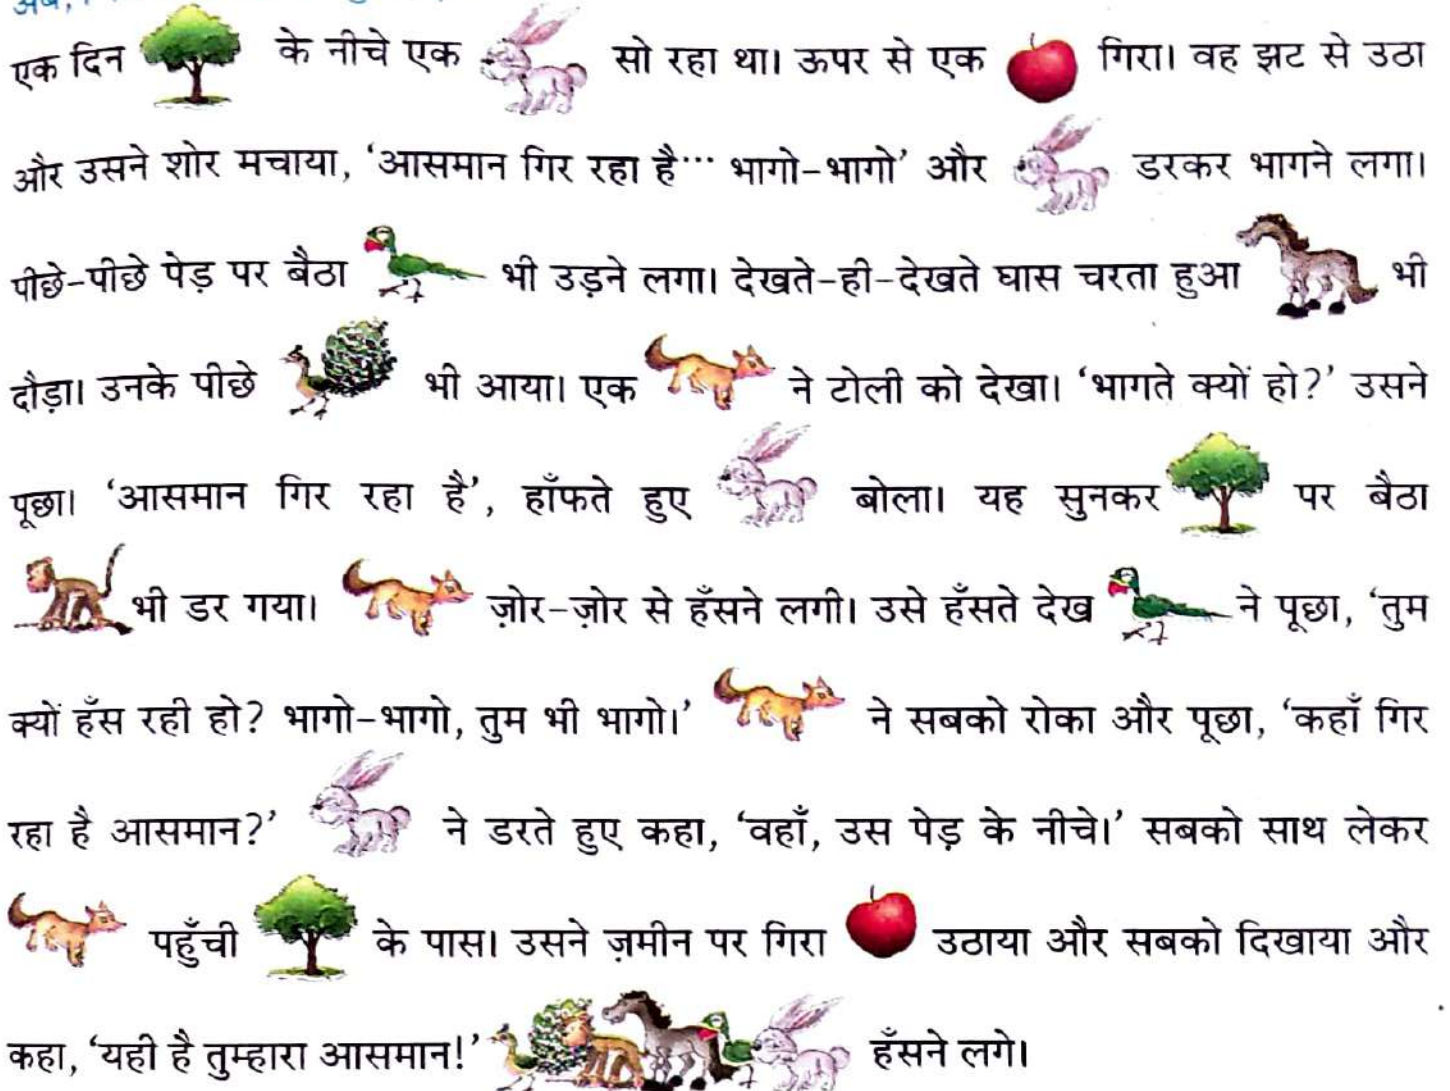 एक दिन के नीचे एक सो रहा था। ऊपर से एक गिरा। वह झट से उठा
और उसने शोर मचाया, ‘आसमान गिर रहा है··· भागो-भागो’ और डरकर भागने लगा।
पीछे-पीछे पेड़ पर बैठा भी उड़ने लगा। देखते-ही-देखते घास चरता हुआ भी
दौड़ा। उनके पीछे भी आया। एक ने टोली को देखा। ‘भागते क्यों हो?’ उसने
पूछा। ‘आसमान गिर रहा है’, हाँफते हुए बोला। यह सुनकर पर बैठा
भी डर गया। ज़ोर-ज़ोर से हँसने लगी। उसे हँसते देख ने पूछा, ‘तुम
क्यों हँस रही हो? भागो-भागो, तुम भी भागो।’ ने सबको रोका और पूछा, ‘कहाँ गिर
रहा है आसमान?’ ने डरते हुए कहा, ‘वहाँ, उस पेड़ के नीचे।’ सबको साथ लेकर
पहुँची के पास। उसने ज़मीन पर गिरा उठाया और सबको दिखाया और
कहा, ‘यही है तुम्हारा आसमान!’ हँसने लगे।